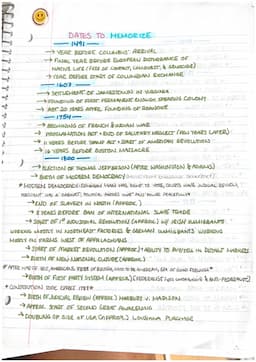 DATES TO MEMORIZE
1491
→ YEAR BEFORE COLUMBUS' ARRIVAL
→ FINAL YEAR BEFORE EUROPEAN DISTURBANCE OF
NATIVE LIFE (FREE OF CONTACT, CONQUEST, & GENOCIDE)
→ YEAR BEFORE START OF COLUMBIAN EXCHANGE
1607
→ SETTLEMENT OF JAMESTOWN IN VIRGINIA
→ FOUNDING OF FIRST PERMANENT ENGLISH SPEAKING COLONY
→ YEARS AFTER FOUNDING OF ROANOKE
1754
→ BEGINNING OF FRENCH & INDIAN WAR
→ PROCLAMATION ACT + END OF SALUTARY NEGLECT (YEARS LATER)
→ 11 YEARS BEFORE STAMP ACT + START OF AMERICAN REVOLUTION
→ 16 YEARS BEFORE BOSTON MASSACRE
1800
→ ELECTION OF THOMAS JEFFERSON (AFTER WASHINGTON & ADAMS)
→ BIRTH OF MODERN DEMOCRACY
* MODERN DEMOCRACY: COMMON MAN HAS RIGHT TO VOTE, COURTS HAVE JUDICIAL REVIEW,
→ END OF SLAVERY IN NORTH (APPROX.)
→ 8 YEARS BEFORE BAN OF INTERNATIONAL SLAVE TRADE
→ START OF 1ST INDUSTRIAL REVOLUTION (APPROX.) W/ IRISH IMMIGRANTS
WORKING MOSTLY IN NORTHEAST FACTORIES & GERMAN IMMIGRANTS WORKING
MOSTLY ON FARMS WEST OF APPALACHIANS
→ START OF MARKET REVOLUTION (APPROX.) ABILITY TO BUY/SELL IN DISTANT MARKETS
→ BIRTH OF NEW NATIONAL CULTURE (APPROX.)
* AFTER WAR OF 1812, AMERICANS ERA OF GOOD FEELINGS *
→ BIRTH OF FIRST PARTY SYSTEM (APPROX.) (FEDERALISTS & ANTI-FEDERALISTS)
* CONSTITUTION 1787 *
→ BIRTH OF JUDICIAL REVIEW (APPROX.) MARBURY V. MADISON
→ APPROX. START OF SECOND GREAT AWAKENING
→ DOUBLING OF SIZE OF USA (APPROX.) LOUISIANA PURCHASE